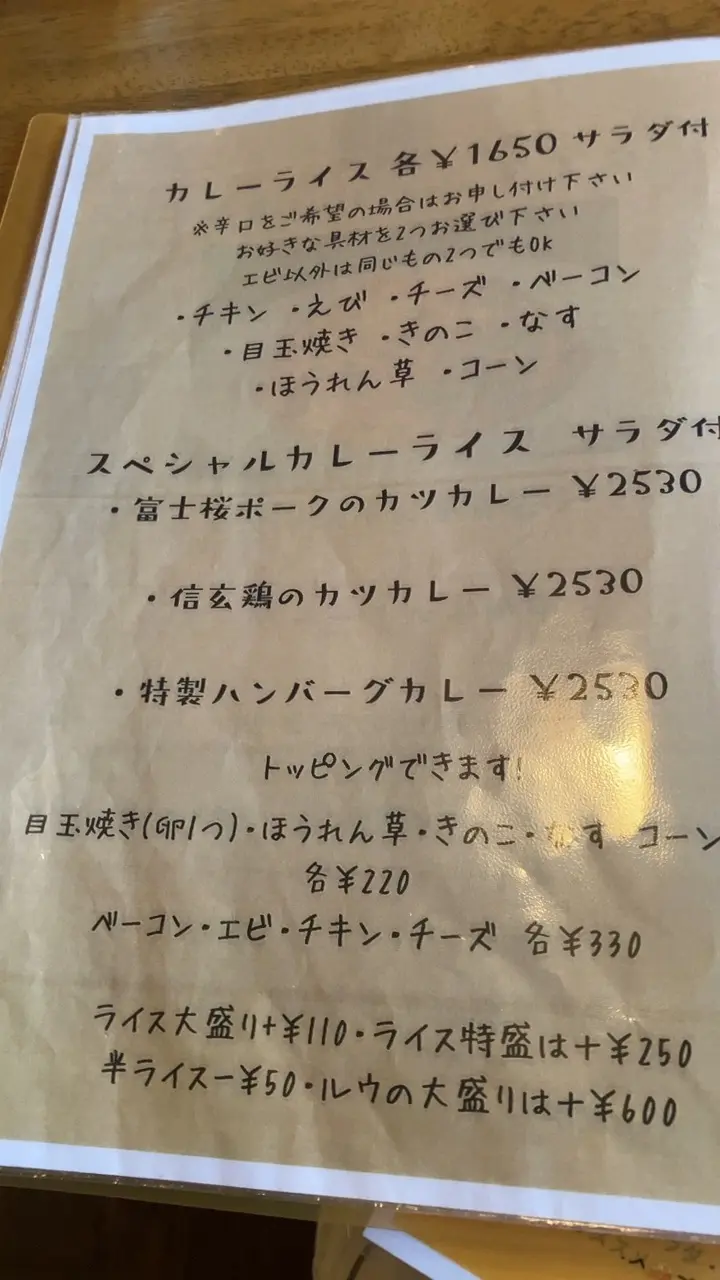 カレーライス 各¥1650 サラダ付
※辛口をご希望の場合はお申し付け下さい
お好きな具材を2つお選び下さい
エビ以外は同じもの2つでもOK
・チキン ・えび ・チーズ ・ベーコン
・目玉焼き ・きのこ ・なす
・ほうれん草 ・コーン
スペシャルカレーライス サラダ付
・富士桜ポークのカツカレー ¥2530
・信玄鶏のカツカレー ¥2530
・特製ハンバーグカレー ¥2530
トッピングできます!
目玉焼き(卵1つ)・ほうれん草・きのこ・なす コーン
各¥220
ベーコン・エビ・チキン・チーズ 各¥330
ライス大盛り+¥110・ライス特盛は+¥250
半ライスー¥50・ルウの大盛りは+¥600